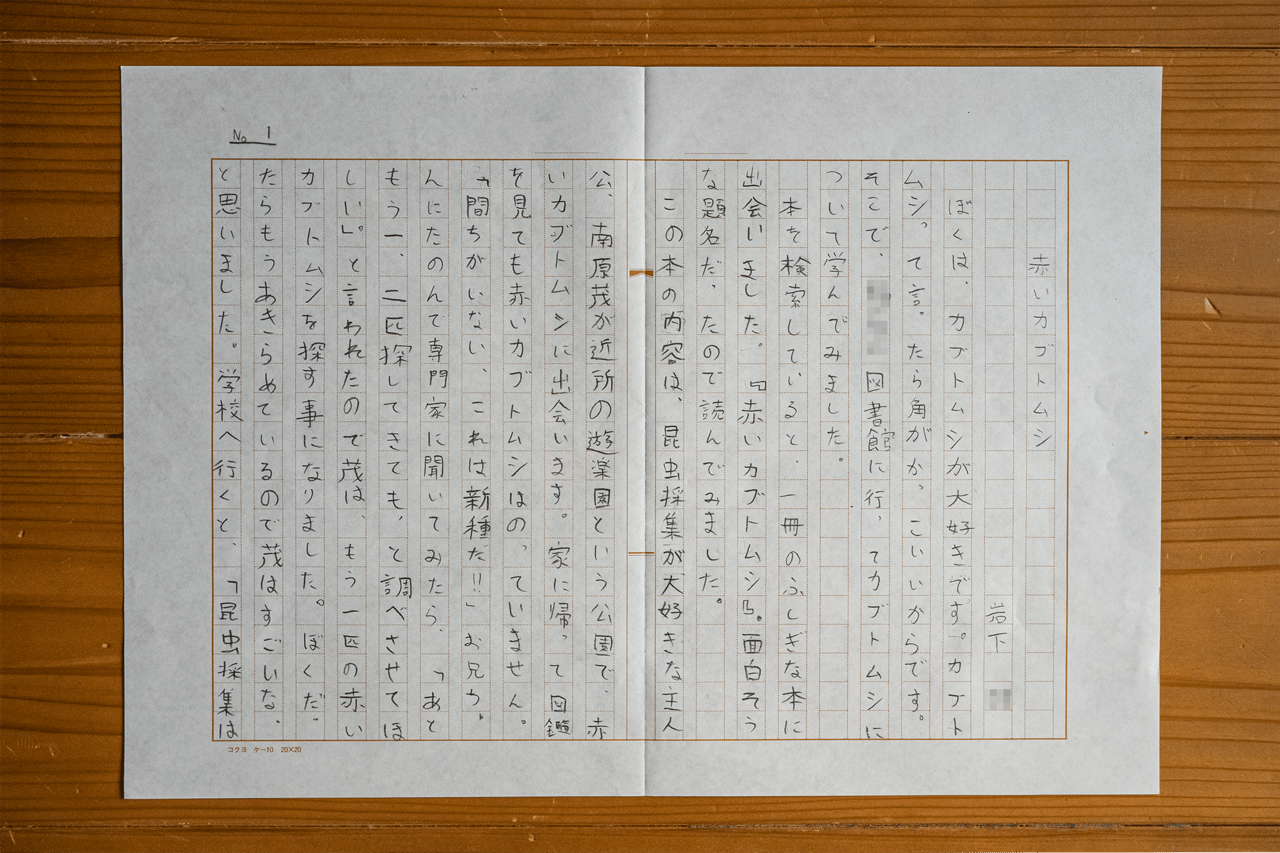 No 1
赤いカブトムシ
岩下
ぼくは、カブトムシが大好きです。カブト
ムシって言ったら角がかっこいいからです。
そこで、図書館に行ってカブトムシに
ついて学んでみました。
本を検索していると、一冊のふしぎな本に
出会いました。『赤いカブトムシ』。面白そう
な題名だったので読んでみました。
この本の内容は、昆虫採集が大好きな主人
公、南原茂が近所の遊楽園という公園で、赤
いカブトムシに出会います。家に帰って図鑑
を見ても赤いカブトムシはのっていません。
「間ちがいない、これは新種だ!!」お兄ち
んにたのんで専門家に聞いてみたら、「あと
もう一、二匹探してきても、と調べさせてほ
しい」。と言われたので茂は、もう一匹の赤い
カブトムシを探す事になりました。ぼくだっ
たらもうあきらめているので茂はすごいな、
と思いました。学校へ行くと、「昆虫採集は
コクヨ ケー10 20×20